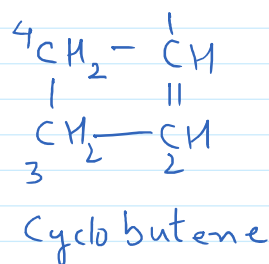 1
⁴CH₂ – CH
| ||
CH₂ — CH
3 2
Cyclobutene